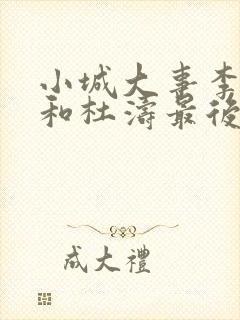 小城大喜李
和杜濤最後
成大禮